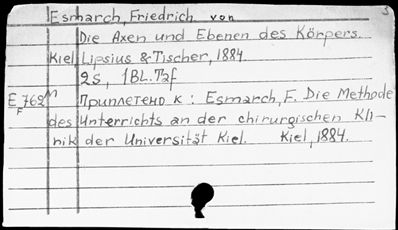 3
Esmarch, Friedrich von
Die Axen und Ebenen des Körpers.
Kiel, Lipsius & Tischer, 1884.
2S, 1BL. Taf
E 762 M
F
Приплетено к : Esmarch, F. Die Methode
des Unterrichts an der chirurgischen Kli-
nik der Universität Kiel. Kiel, 1884.